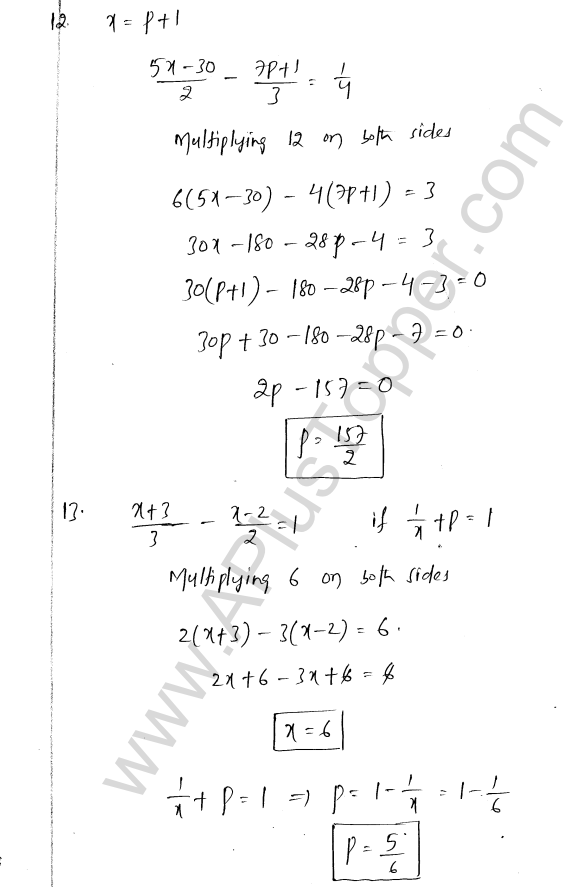 12. x = p+1
(5x-30)/2 - (7p+1)/3 = 1/4
Multiplying 12 on both sides
6(5x-30) - 4(7p+1) = 3
30x-180-28p-4 = 3
30(p+1) - 180-28p-4-3=0
30p+30-180-28p-7=0.
2p-157=0
p= 157/2
13. (x+3)/3 - (x-2)/2 = 1 if 1/x + p = 1
Multiplying 6 on both sides
2(x+3) - 3(x-2) = 6.
2x+6-3x+6 = 6
x = 6
1/x + p = 1 ⇒ p = 1 - 1/x = 1 - 1/6
p = 5/6
www.APlusTopper.com